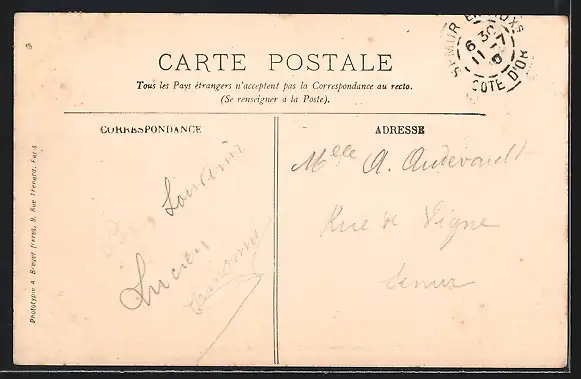 SEMUR EN AUXS
6 30
11 - 7
COTE D'OR
CARTE POSTALE
Tous les Pays étrangers n'acceptent pas la Correspondance au recto.
(Se renseigner à la Poste).
CORRESPONDANCE
ADRESSE
Bon Souvenir
Lucien
Mlle A. Audevault
Rue de Vigne
Semur
Phototypie A. Breger frères, 9, Rue Thénard, Paris